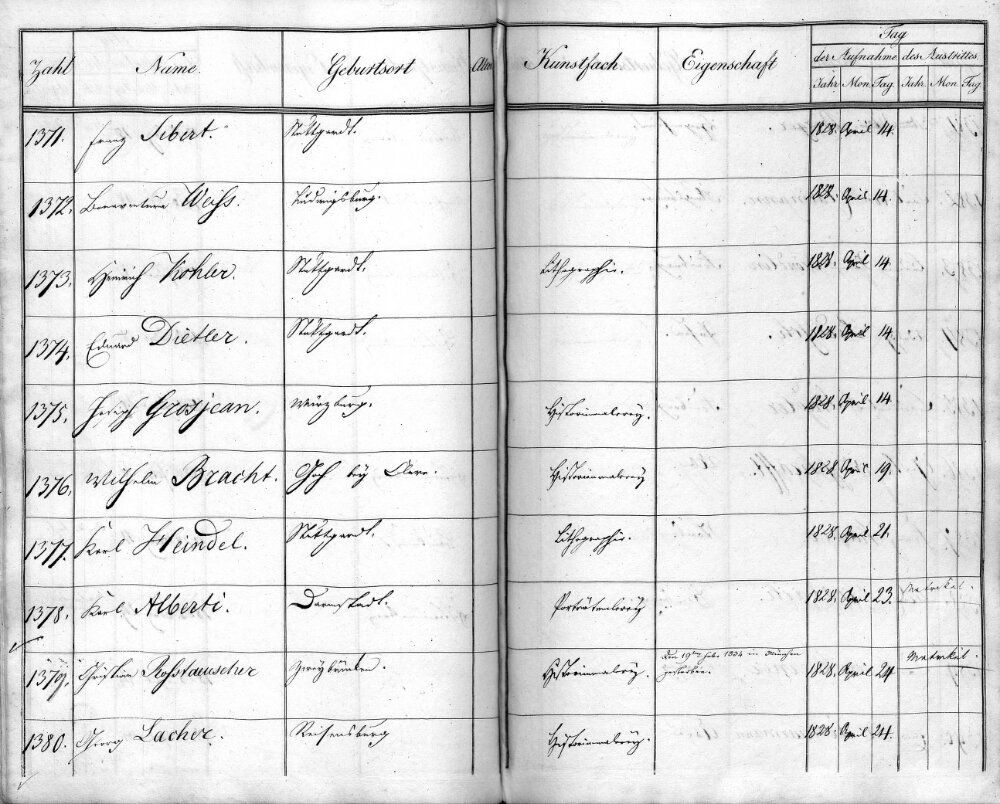 Zahl Name. Geburtsort Alter Kunstfach Eigenschaft Tag
der Aufnahme des Austrittes
Jahr Mon Tag Jahr. Mon Tag
1371. Franz Sibert. Stuttgardt. 1828. April 14.
1372. Bonaventura Weiss. Ludwigsburg. 1828. April 14.
1373. Heinrich Kohler. Stuttgardt. Lithographie. 1828. April 14.
1374. Eduard Dietler. Stuttgardt. 1828. April 14.
1375. Joseph Grosjean. Würzburg. Historienmalerey. 1828. April 14.
1376. Wilhelm Bracht. Goch bey Cleve. Historienmalerey 1828. April 19.
1377. Karl Heindel. Stuttgardt. Lithographie. 1828. April 21.
1378. Karl Alberti. Darmstadt. Porträtmalerey 1828. April 23. Matrikel.
1379. Christian Rosstauscher Zweybrücken. Historienmalerey. Den 19ten Feb. 1834 in München
gestorben. 1828. April 24 Matrikel.
1380. Georg Lacher. Reisensburg Historienmalerey. 1828. April 24.